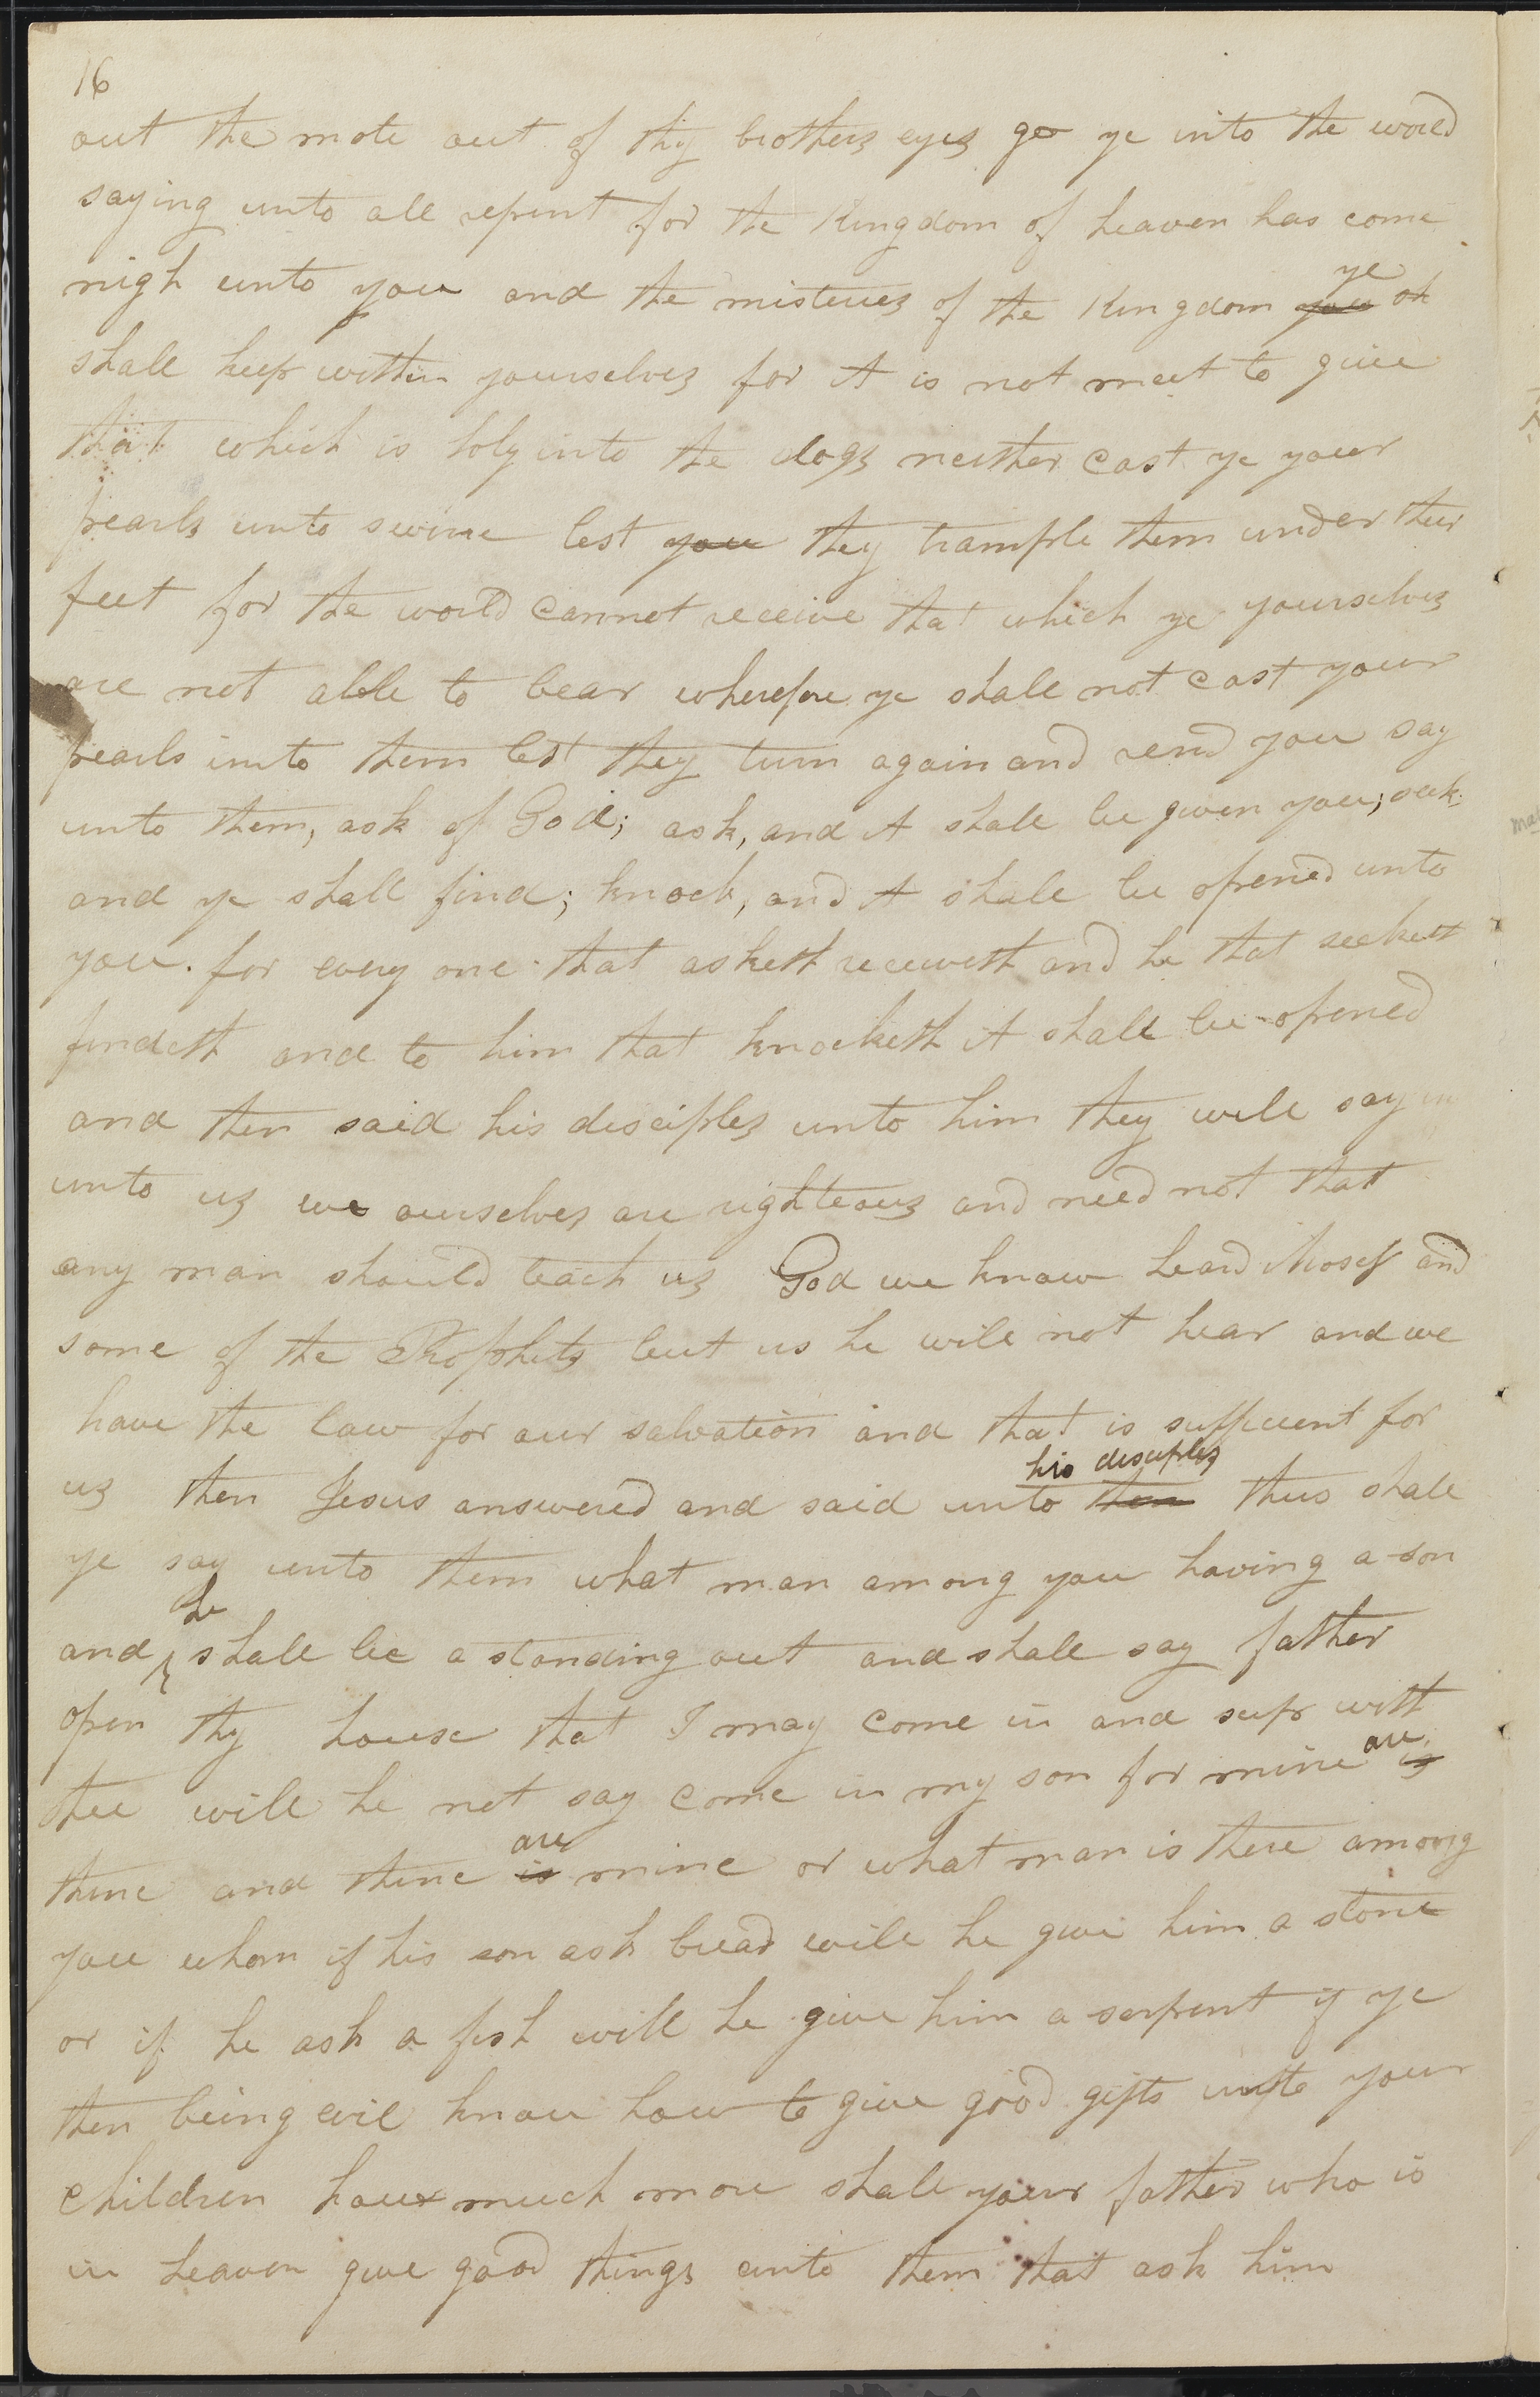 16
out the mote out of thy brothers eyes go ye into the world
saying unto all repent for the Kingdom of heaven has come
nigh unto you and the misteries of the Kingdom you ye
shall keep within yourselves for it is not meet to give
that which is holy unto the dogs neither cast ye your
pearls unto swine lest you they trample them under their
feet for the world cannot receive that which ye yourselves
are not able to bear wherefore ye shall not cast your
pearls unto them lest they turn again and rend you say
unto them, ask of God; ask, and it shall be given you; seek
and ye shall find; knock, and it shall be opened unto
you. for every one that asketh receiveth and he that seeketh
findeth and to him that knocketh it shall be opened
and then said his disciples unto him they will say
unto us we ourselves are righteous and need not that
any man should teach us God we know heard Moses and
some of the Prophets but us he will not hear and we
have the law for our salvation and that is sufficient for
us then Jesus answered and said unto them his disciples thus shall
ye say unto them what man among you having a son
and he shall be a standing out and shall say father
open thy house that I may come in and sup with
thee will he not say come in my son for mine are is
thine and thine is are mine or what man is there among
you whom if his son ask bread will he give him a stone
or if he ask a fish will he give him a serpent if ye
then being evil know how to give good gifts unto your
children how much more shall your father who is
in heaven give good things unto them that ask him